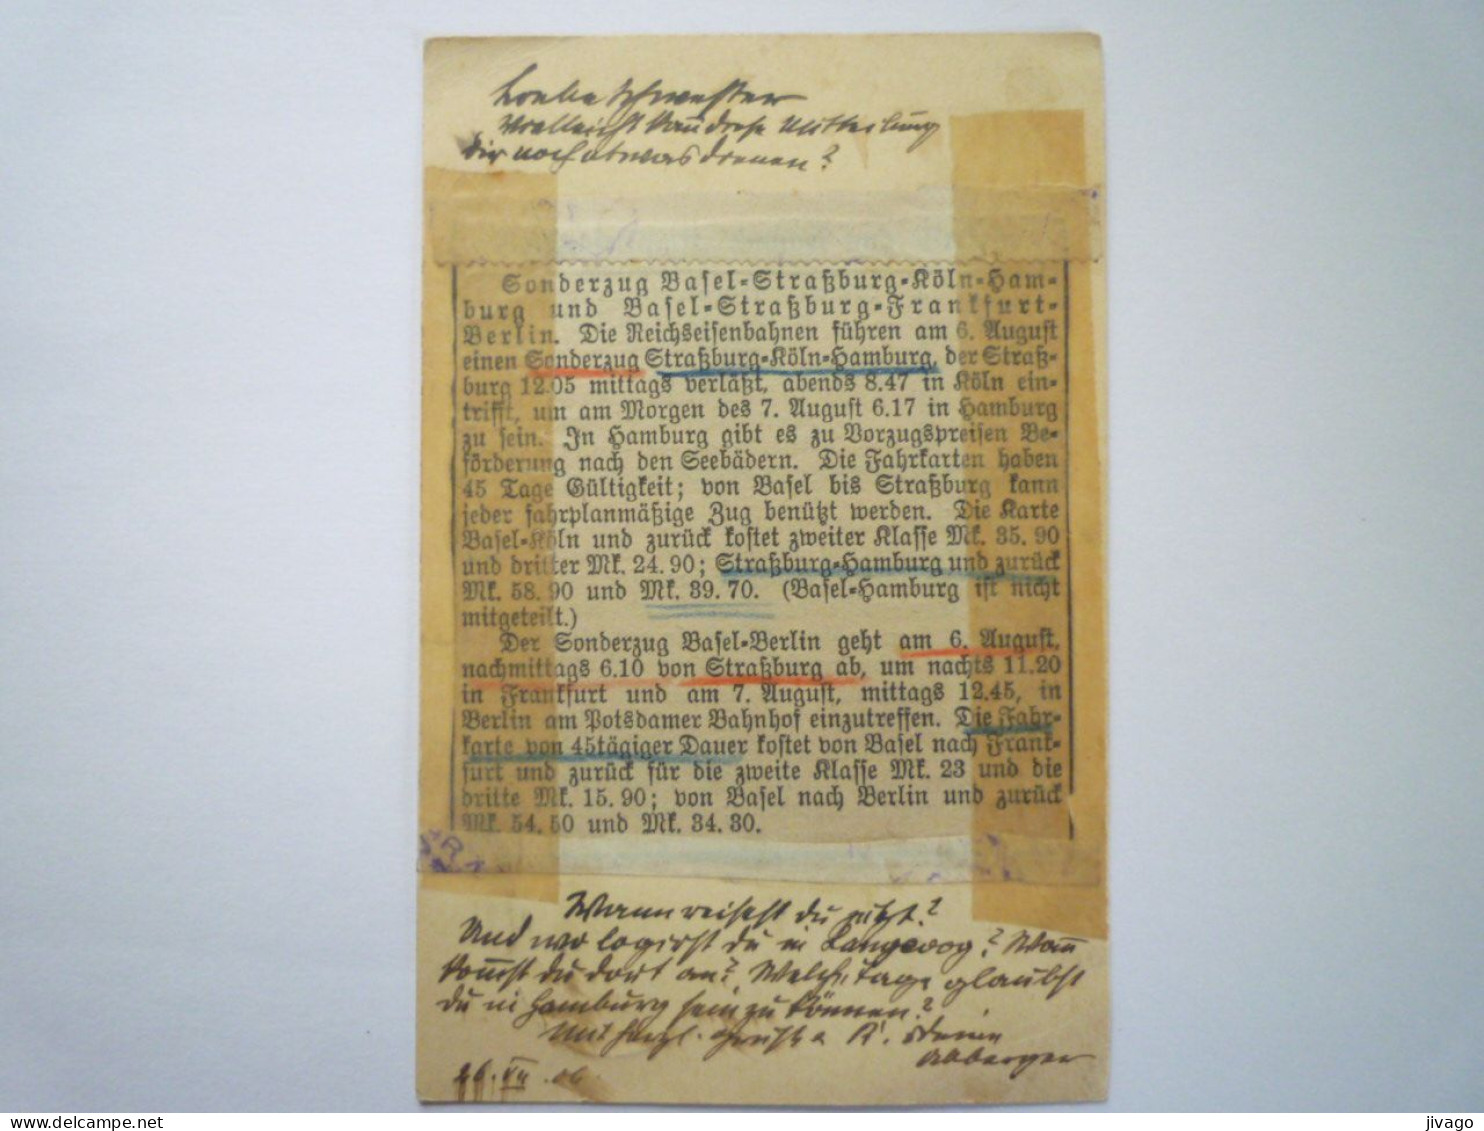 Liebe Schwester
Vielleicht kann diese Mitteilung
dir noch etwas dienen?
Sonderzug Basel-Straßburg-Köln-Ham-
burg und Basel-Straßburg-Frankfurt-
Berlin. Die Reichseisenbahnen führen am 6. August
einen Sonderzug Straßburg-Köln-Hamburg, der Straß-
burg 12.05 mittags verläßt, abends 8.47 in Köln ein-
trifft, um am Morgen des 7. August 6.17 in Hamburg
zu sein. In Hamburg gibt es zu Vorzugspreisen Be-
förderung nach den Seebädern. Die Fahrkarten haben
45 Tage Gültigkeit; von Basel bis Straßburg kann
jeder fahrplanmäßige Zug benützt werden. Die Karte
Basel-Köln und zurück kostet zweiter Klasse Mk. 35.90
und dritter Mk. 24.90; Straßburg-Hamburg und zurück
Mk. 58.90 und Mk. 39.70. (Basel-Hamburg ist nicht
mitgeteilt.)
Der Sonderzug Basel-Berlin geht am 6. August,
nachmittags 6.10 von Straßburg ab, um nachts 11.20
in Frankfurt und am 7. August, mittags 12.45, in
Berlin am Potsdamer Bahnhof einzutreffen. Die Fahr-
karte von 45tägiger Dauer kostet von Basel nach Frank-
furt und zurück für die zweite Klasse Mk. 23 und die
dritte Mk. 15.90; von Basel nach Berlin und zurück
Mk. 54.50 und Mk. 34.30.
Wann reisest du jetzt?
Und wo logirst du in Langeoog? Wann
kommst du dort an? Welche Tage glaubst
du in Hamburg sein zu können?
Mit herzl. Gruß & K. Deine
26. VII. 06.
jivago